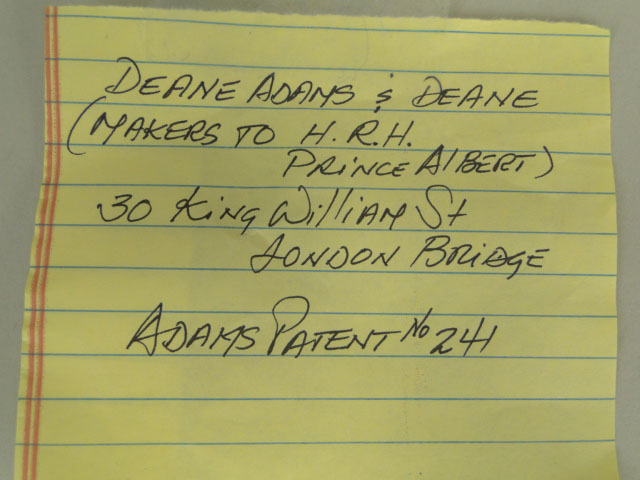 DEANE ADAMS & DEANE
(MAKERS TO H.R.H.
PRINCE ALBERT)
30 KING WILLIAM St
LONDON BRIDGE
ADAMS PATENT No 241